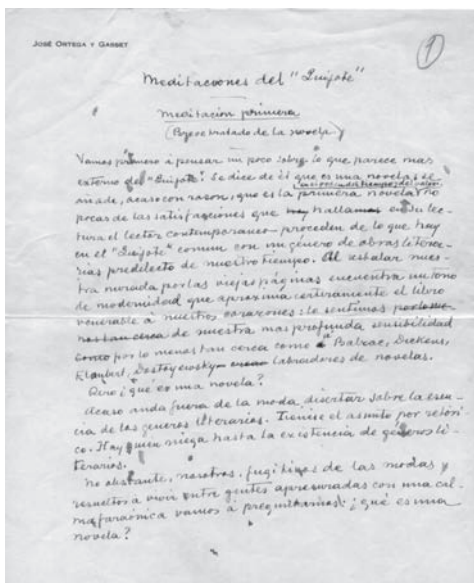 JOSÉ ORTEGA Y GASSET
1
Meditaciones del "Quijote"
Meditación primera
(Breve tratado de la novela)
Vamos primero á pensar un poco sobre lo que parece mas
externo del "Quijote". Se dice de él que es una novela; se
añade, acaso con razon, que es la primera novela
en el orden del tiempo y del valor. No
pocas de las satisfacciones que halla en su lec-
tura el lector contemporaneo proceden de lo que hay
en el "Quijote" comun con un género de obras litera-
rias predilecto de nuestro tiempo. Al resbalar nues-
tra mirada por las viejas páginas encuentra un tono
de modernidad que aproxima certeramente el libro
venerable á nuestros corazones: lo sentimos
de nuestra mas profunda sensibilidad
por lo menos tan cerca como á Balzac, Dickens,
Flaubert, Dostoyewsky labradores de novelas.
Pero ¿qué es una novela?
Acaso anda fuera de la moda disertar sobre la esen-
cia de los géneros literarios. Tiénese el asunto por retóri-
co. Hay quien niega hasta la existencia de géneros li-
terarios.
No obstante, nosotros, fugitivos de las modas y
resueltos á vivir entre gentes apresuradas con una cal-
ma faraónica vamos á preguntarnos: ¿qué es una
novela?